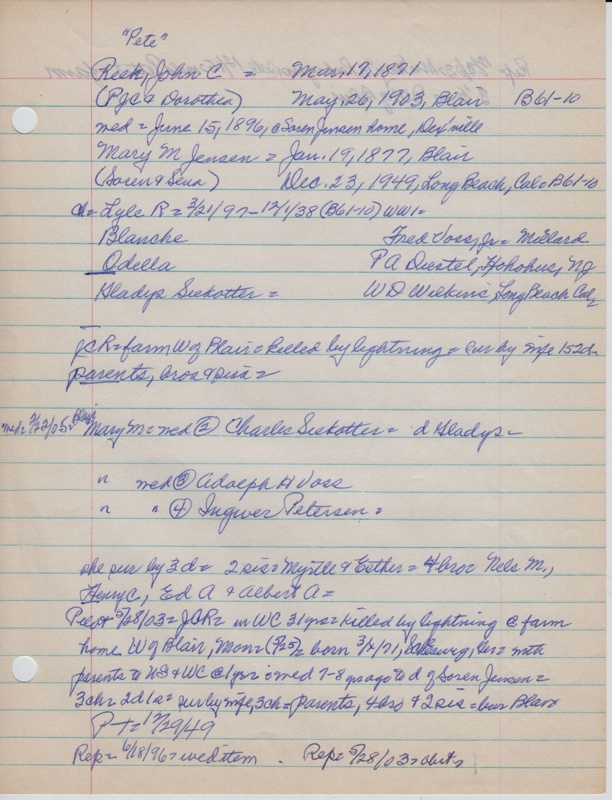 "Pete"
Resh, John C = Mar, 17, 1871
(PJC & Dorothea) May, 26, 1903, Blair B61-10
med = June 15, 1896, @ Soren Jensen home, Dex'ville
Mary M Jensen = Jan. 19, 1877, Blair
(Soren & Sena) Dec. 23, 1949, Long Beach, Cal = B61-10
ch = Lyle R = 3/21/97 - 12/1/38 (B61-10) WW1 =
Blanche Fred Voss, Jr = Millard
Odella PA Diestel, Hohokus, NJ
Gladys Siekotter = WD Wilkins, Long Beach Cal,
JCR = farm W of Blair = killed by lightning = sur by wife 1s 2d =
parents, bros & sis =
med = 3/22/05 = Blair Mary M = med ② Charles Siekotter = d Gladys =
" med ③ Adolph H Voss
" " ④ Ingwer Petersen =
she sur by 3 d = 2 sis = Myrtle & Esther = 4 bro = Nels M.,
Henry C, Ed A & Albert A =
Pilot 5/28/03 = JCR = in WC 31 yrs = killed by lightning @ farm
home W of Blair, Mon = (5/25) = born 3/17/71, Ger = with
parents to US & WC @ 1 yr = med 7-8 yrs ago to d of Soren Jensen =
3 ch = 2d 1s = sur by wife, 3 ch = parents, 4 bro & 2 sis = bur Blair
P-T = 12/29/49
Rep = 6/18/96 = wed item . Rep = 5/28/03 = obit =